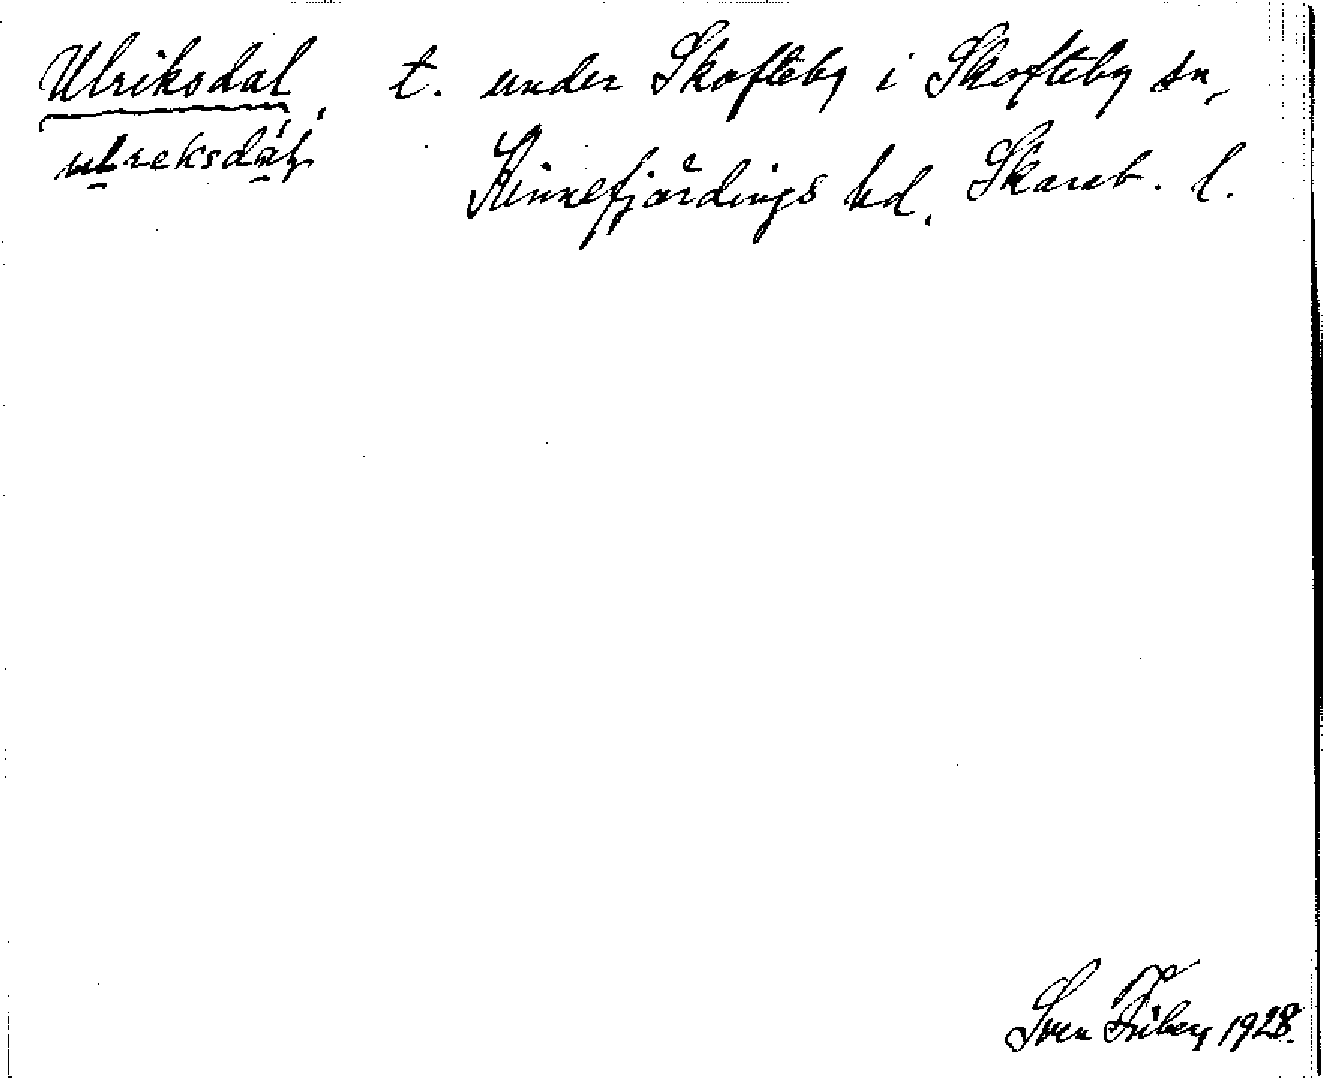 Ulriksdal, t. under Skofteby i Skofteby sn,
ulreksdál, Kinnefjärdings hd. Skarab. l.
Sven Friberg 1928.